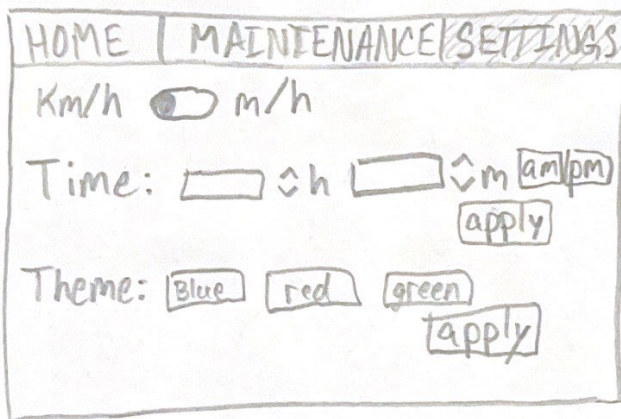 HOME MAINTENANCE SETTINGS
Km/h m/h
Time: h m am pm
apply
Theme: Blue red green
apply